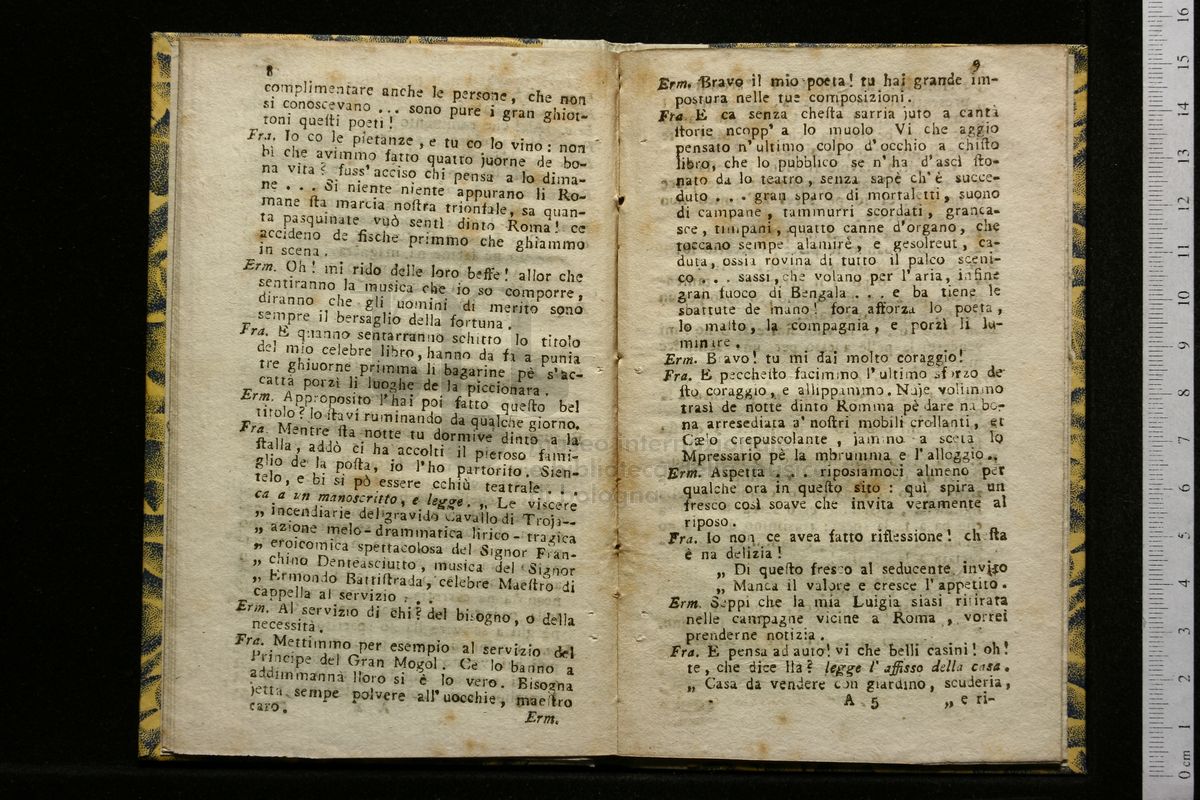 8
complimentare anche le persone, che non
si conoscevano ... sono pure i gran ghiot-
toni questi poeti!
Fra. Io co le pietanze, e tu co lo vino: non
bì che avimmo fatto quattro juorne de bo-
na vita? fuss' acciso chi pensa a lo dima-
ne ... Si niente niente appurano li Ro-
mane sta marcia nostra trionfale, sa quan-
ta pasquinate vuò sentì dinto Roma! ce
accideno de fische primmo che ghiammo
in scena.
Erm. Oh! mi rido delle loro beffe! allor che
sentiranno la musica che io so comporre,
diranno che gli uomini di merito sono
sempre il bersaglio della fortuna.
Fra. E quanno sentarranno schitto lo titolo
del mio celebre libro, hanno da fa a punia
tre ghiuorne primma li bagarine pè s'ac-
cattà porzì li luoghe de la piccionara.
Erm. Approposito l'hai poi fatto questo bel
titolo? lo stavi ruminando da qualche giorno.
Fra. Mentre sta notte tu dormive dinto a la
stalla, addò ci ha accolti il pietoso fami-
glio de la posta, io l'ho partorito. Sien-
telo, e bì si pò essere cchiù teatrale ...
ca a un manoscritto, e legge. „ Le viscere
„ incendiarie del gravido Cavallo di Troja--
„ azione melo-drammatica lirico-tragica
„ eroicomica spettacolosa del Signor Fran-
„ chino Denteasciutto, musica del Signor
„ Ermondo Battistrada, celebre Maestro di
cappella al servizio ...
Erm. Al servizio di chi? del bisogno, o della
necessità.
Fra. Mettimmo per esempio al servizio del
Principe del Gran Mogol. Ce lo banno a
addimmannà lloro si è lo vero. Bisogna
jettà sempe polvere all' uocchie, maestro
caro.
Erm.
9
Erm. Bravo il mio poeta! tu hai grande im-
postura nelle tue composizioni.
Fra E ca senza chesta sarria juto a cantà
storie ncopp' a lo muolo Vi che aggio
pensato n' ultimo colpo d'occhio a chisto
libro, che lo pubblico se n' ha d'ascì sto-
nato da lo teatro, senza sapè ch'è succe-
duto ... gran sparo di mortaletti, suono
di campane, tammurri scordati, granca-
sce, timpani, quatto canne d'organo, che
toccano sempe alamirè, e gesolreut, ca-
duta, ossia rovina di tutto il palco sceni-
co ... sassi, che volano per l'aria, infine
gran fuoco di Bengala ... e ba tiene le
sbattute de mano! fora afforza lo poeta,
lo masto, la compagnia, e porzì li lu-
minare.
Erm. Bravo! tu mi dai molto coraggio!
Fra. E pecchesto facimmo l'ultimo sforzo de
sto coraggio, e allippammo. Nuje volimmo
trasì de notte dinto Romma pè dare na bo-
na arresediata a' nostri mobili crollanti, et
Cœlo crepuscolante, jammo a sceta lo
Mpressario pè la mbrumma e l'alloggio..
Erm. Aspetta ... riposiamoci almeno per
qualche ora in questo sito: quì spira un
fresco così soave che invita veramente al
riposo.
Fra. Io non ce avea fatto riflessione! chesta
è na delizia!
„ Di questo fresco al seducente invito
„ Manca il valore e cresce l'appetito.
Erm. Seppi che la mia Luigia siasi ritirata
nelle campagne vicine a Roma, vorrei
prenderne notizia.
Fra. E pensa ad auto! vi che belli casini! oh!
te, che dice lla? legge l' affisso della casa.
„ Casa da vendere con giardino, scuderia,
A 5
„ e ri-